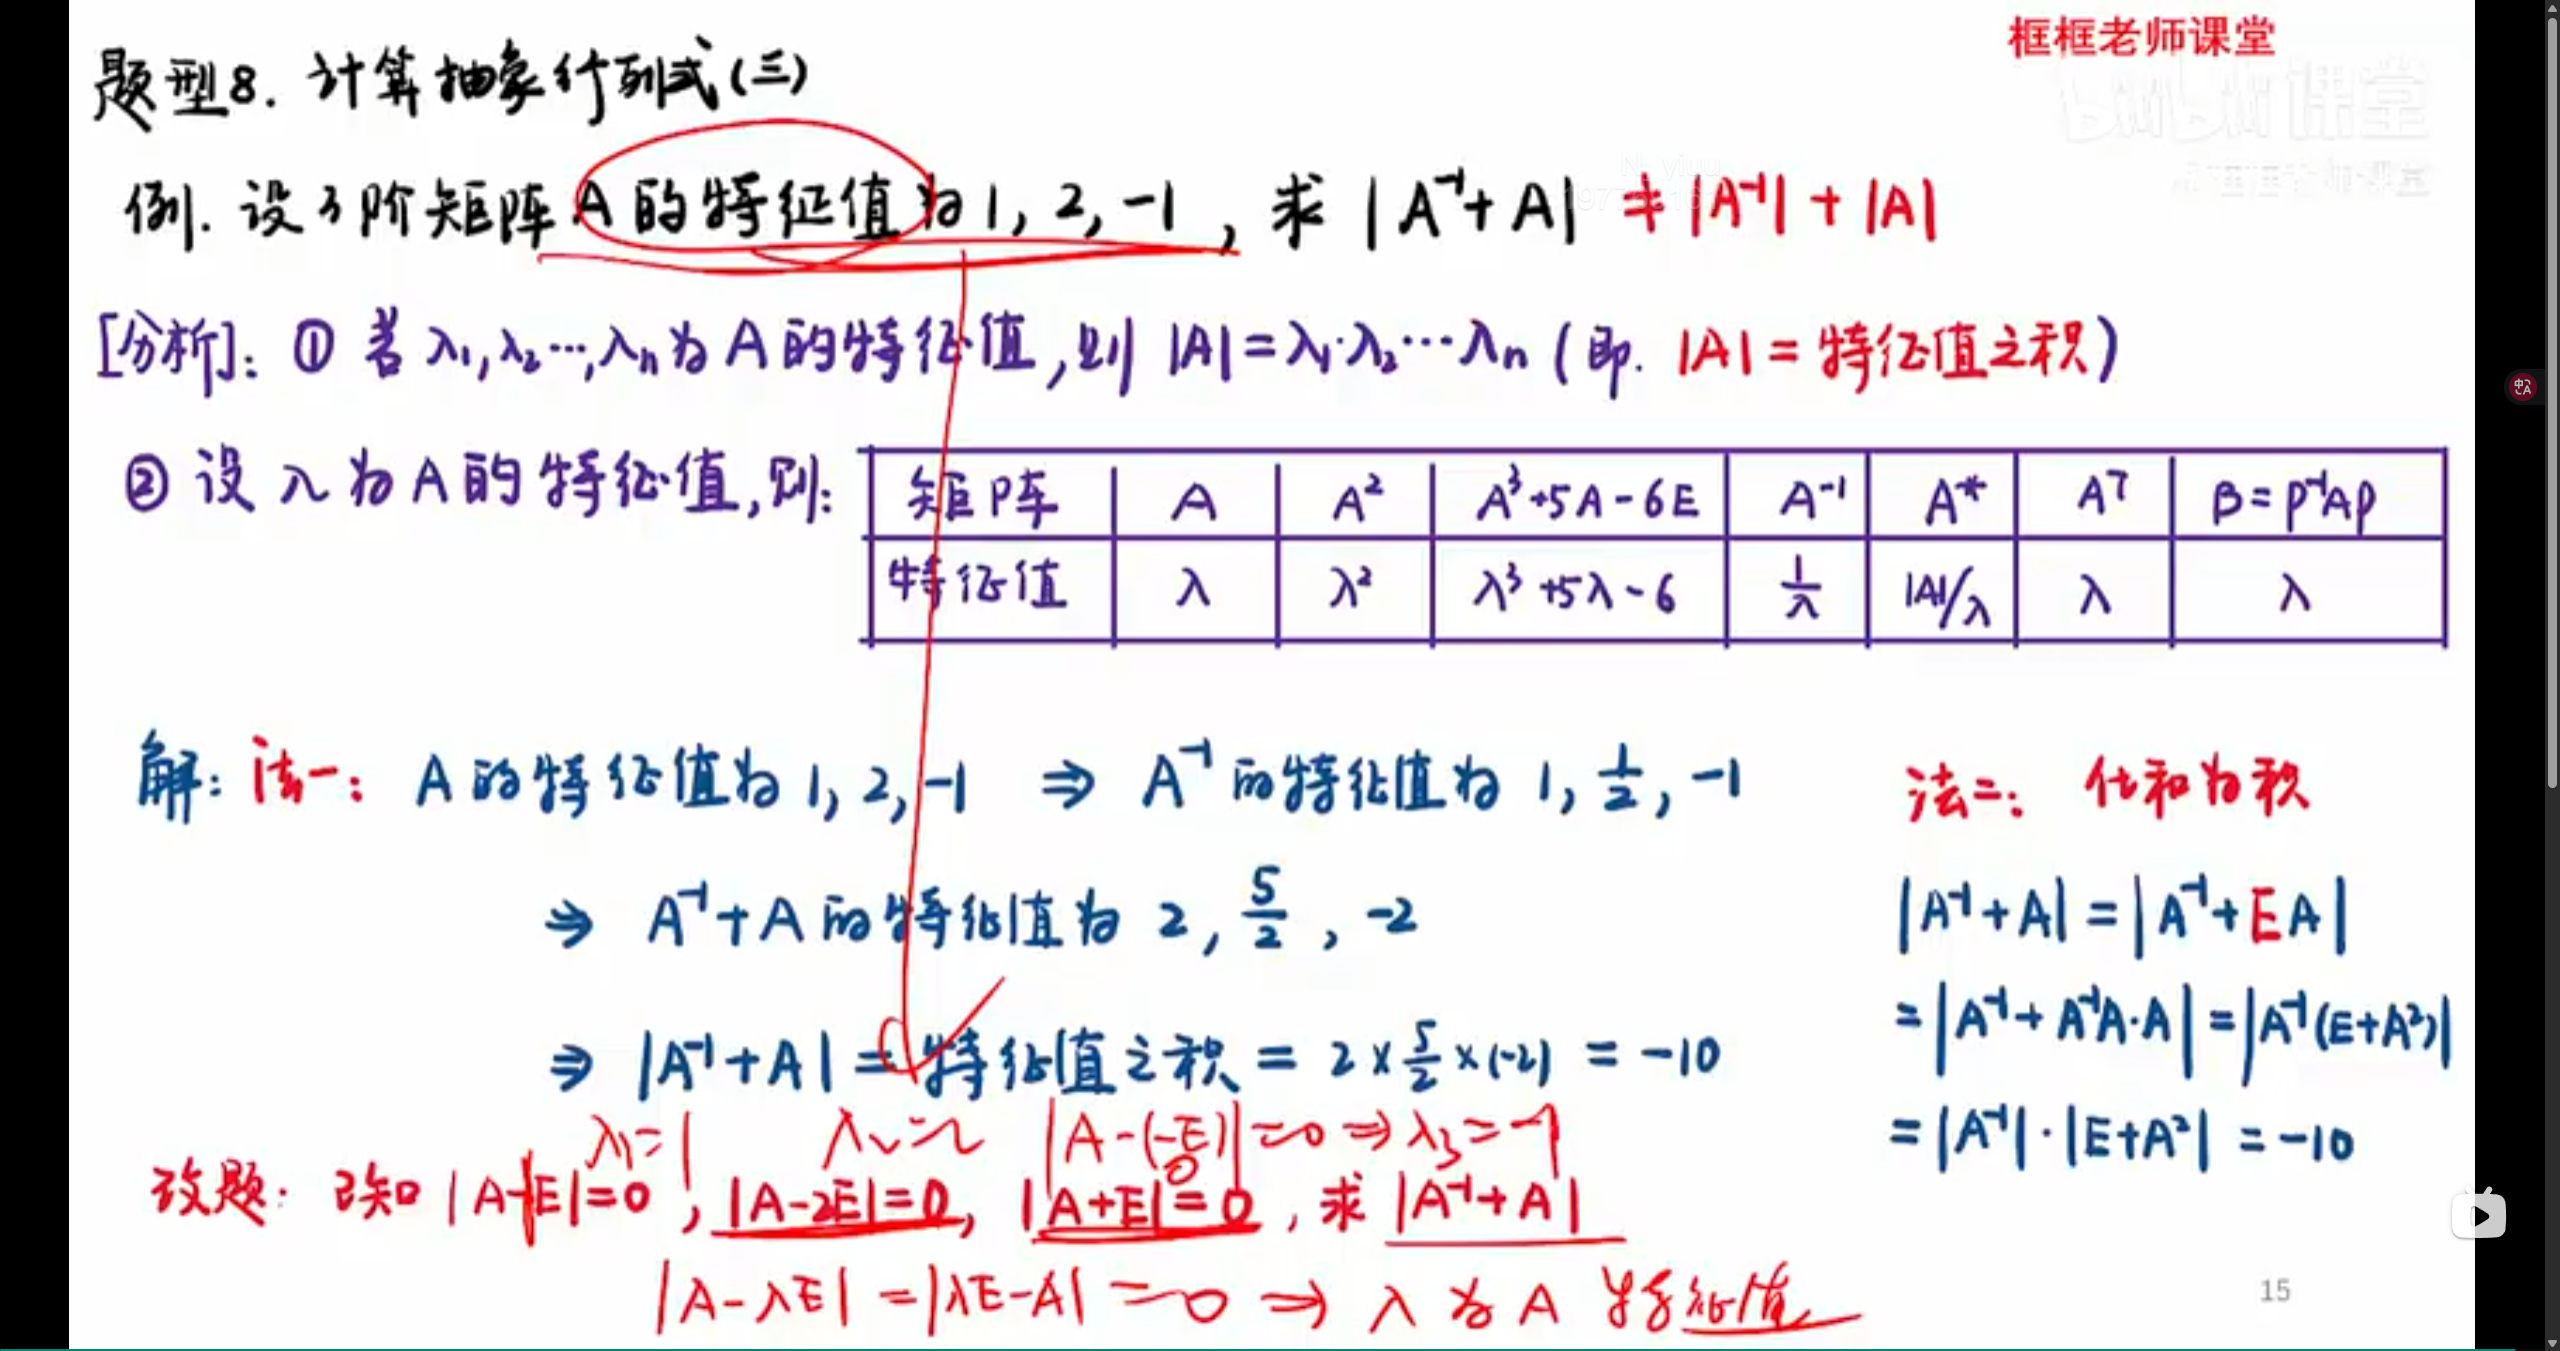 框框老师课堂
题型8. 计算抽象行列式(三)
bilibili课堂
例. 设3阶矩阵A的特征值为1, 2, -1, 求 |A⁻¹+A| ≠ |A⁻¹| + |A|
[分析]: ① 若λ₁,λ₂…,λn为A的特征值,则 |A|=λ₁·λ₂…λn (即. |A| = 特征值之积)
② 设λ为A的特征值,则:
矩阵 A A² A³+5A-6E A⁻¹ A* Aᵀ B=P⁻¹AP
特征值 λ λ² λ³+5λ-6 1/λ |A|/λ λ λ
解: 法一: A的特征值为1, 2, -1 ⇒ A⁻¹的特征值为 1, 1/2, -1
⇒ A⁻¹+A的特征值为 2, 5/2, -2
⇒ |A⁻¹+A| = 特征值之积 = 2×5/2×(-2) = -10
法二: 化和为积
|A⁻¹+A| = |A⁻¹+EA|
= |A⁻¹+A⁻¹A·A| = |A⁻¹(E+A²)|
= |A⁻¹|·|E+A²| = -10
λ₁=1 λ₂=2 |A-(-E)|=0 ⇒ λ₃=-1
改题: 已知 |A-E|=0, |A-2E|=0, |A+E|=0, 求 |A⁻¹+A|
|A-λE| = |λE-A| = 0 ⇒ λ为A特征值
15